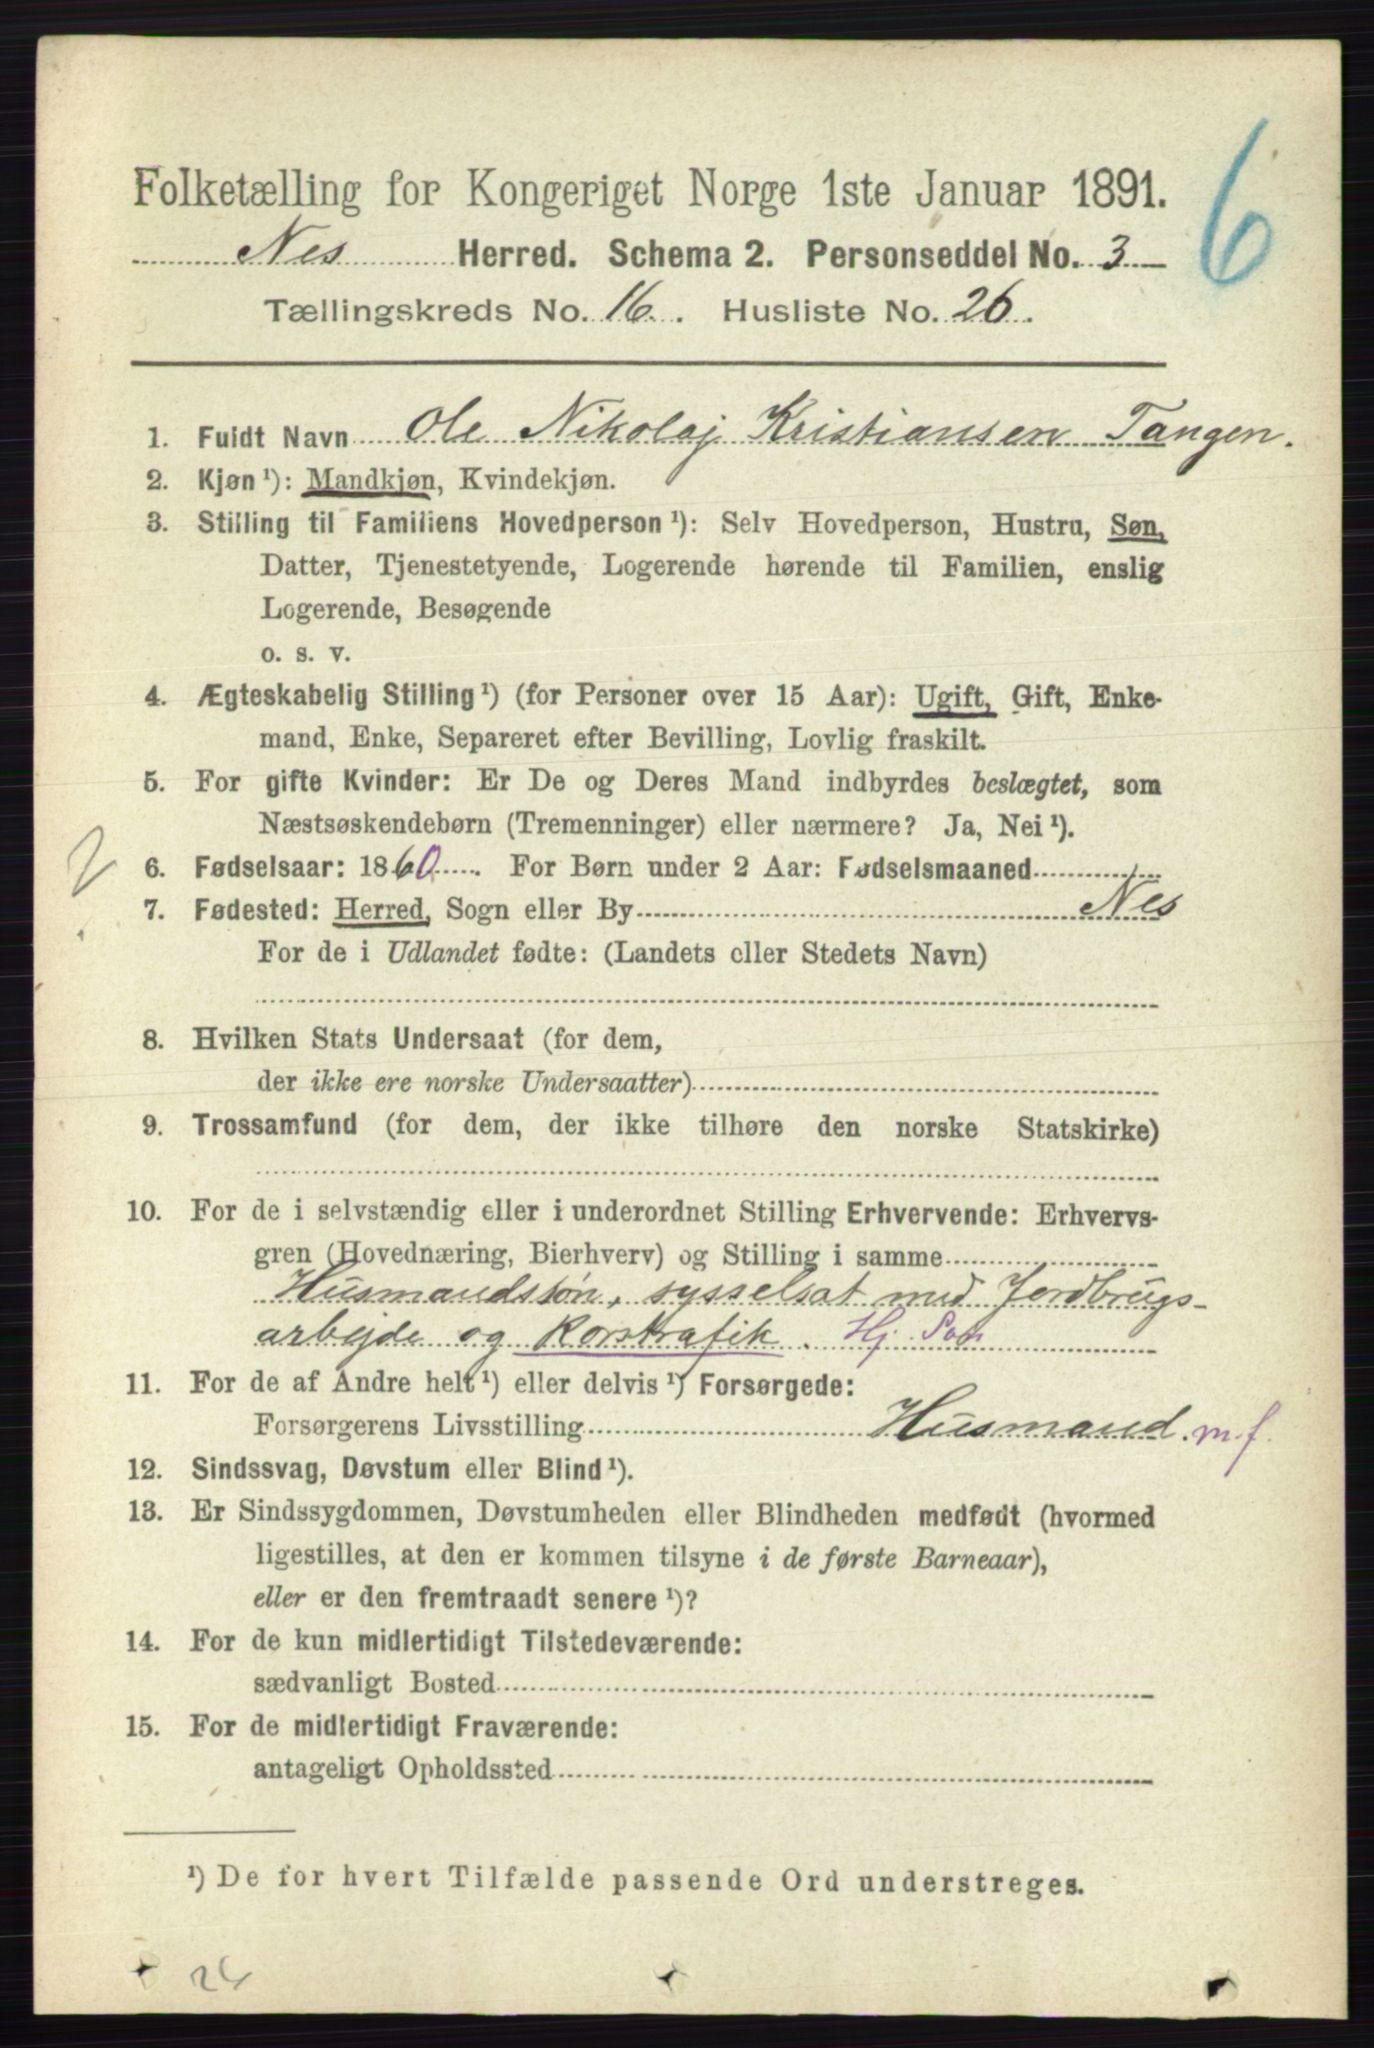 6
Folketælling for Kongeriget Norge 1ste Januar 1891.
Nes Herred. Schema 2. Personseddel No. 3
Tællingskreds No. 16. Husliste No. 26.
1. Fuldt Navn Ole Nikolaj Kristiansen Tangen.
2. Kjøn ¹): Mandkjøn, Kvindekjøn.
3. Stilling til Familiens Hovedperson ¹): Selv Hovedperson, Hustru, Søn,
Datter, Tjenestetyende, Logerende hørende til Familien, enslig
Logerende, Besøgende
o. s. v.
4. Ægteskabelig Stilling ¹) (for Personer over 15 Aar): Ugift, Gift, Enke-
mand, Enke, Separeret efter Bevilling, Lovlig fraskilt.
5. For gifte Kvinder: Er De og Deres Mand indbyrdes beslægtet, som
Næstsøskendebørn (Tremenninger) eller nærmere? Ja, Nei ¹).
6. Fødselsaar: 1860. For Børn under 2 Aar: Fødselsmaaned
7. Fødested: Herred, Sogn eller By Nes
For de i Udlandet fødte: (Landets eller Stedets Navn)
8. Hvilken Stats Undersaat (for dem,
der ikke ere norske Undersaatter)
9. Trossamfund (for dem, der ikke tilhøre den norske Statskirke)
10. For de i selvstændig eller i underordnet Stilling Erhvervende: Erhvervs-
gren (Hovednæring, Bierhverv) og Stilling i samme
Husmandssøn, sysselsat med Jordbrugs-
arbejde og Korstrafik. Hj. Søn
11. For de af Andre helt ¹) eller delvis ¹) Forsørgede:
Forsørgerens Livsstilling Husmand. m. f.
12. Sindssvag, Døvstum eller Blind ¹).
13. Er Sindssygdommen, Døvstumheden eller Blindheden medfødt (hvormed
ligestilles, at den er kommen tilsyne i de første Barneaar),
eller er den fremtraadt senere ¹)?
14. For de kun midlertidigt Tilstedeværende:
sædvanligt Bosted
15. For de midlertidigt Fraværende:
antageligt Opholdssted
¹) De for hvert Tilfælde passende Ord understreges.